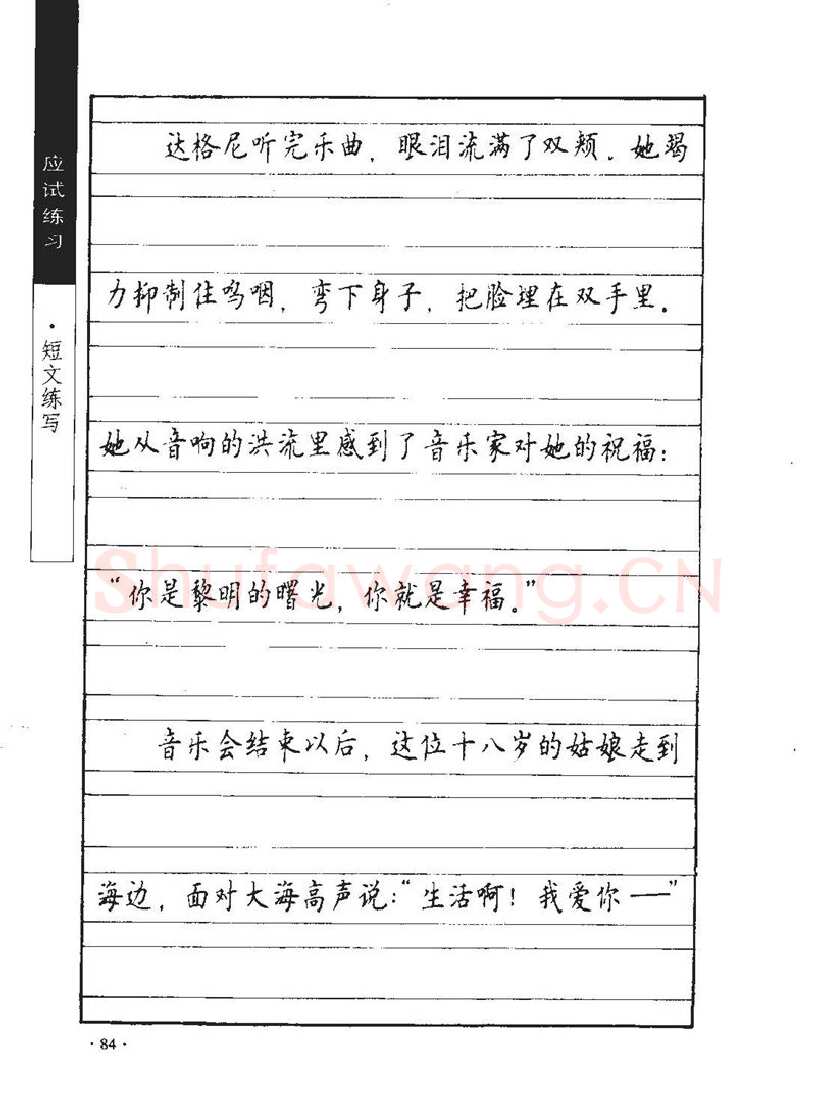 应试练习
·短文练写
达格尼听完乐曲，眼泪流满了双颊。她竭
力抑制住呜咽，弯下身子，把脸埋在双手里。
她从音响的洪流里感到了音乐家对她的祝福：
“你是黎明的曙光，你就是幸福。”
音乐会结束以后，这位十八岁的姑娘走到
海边，面对大海高声说：“生活啊！我爱你——”
·84·
Shufawang.CN